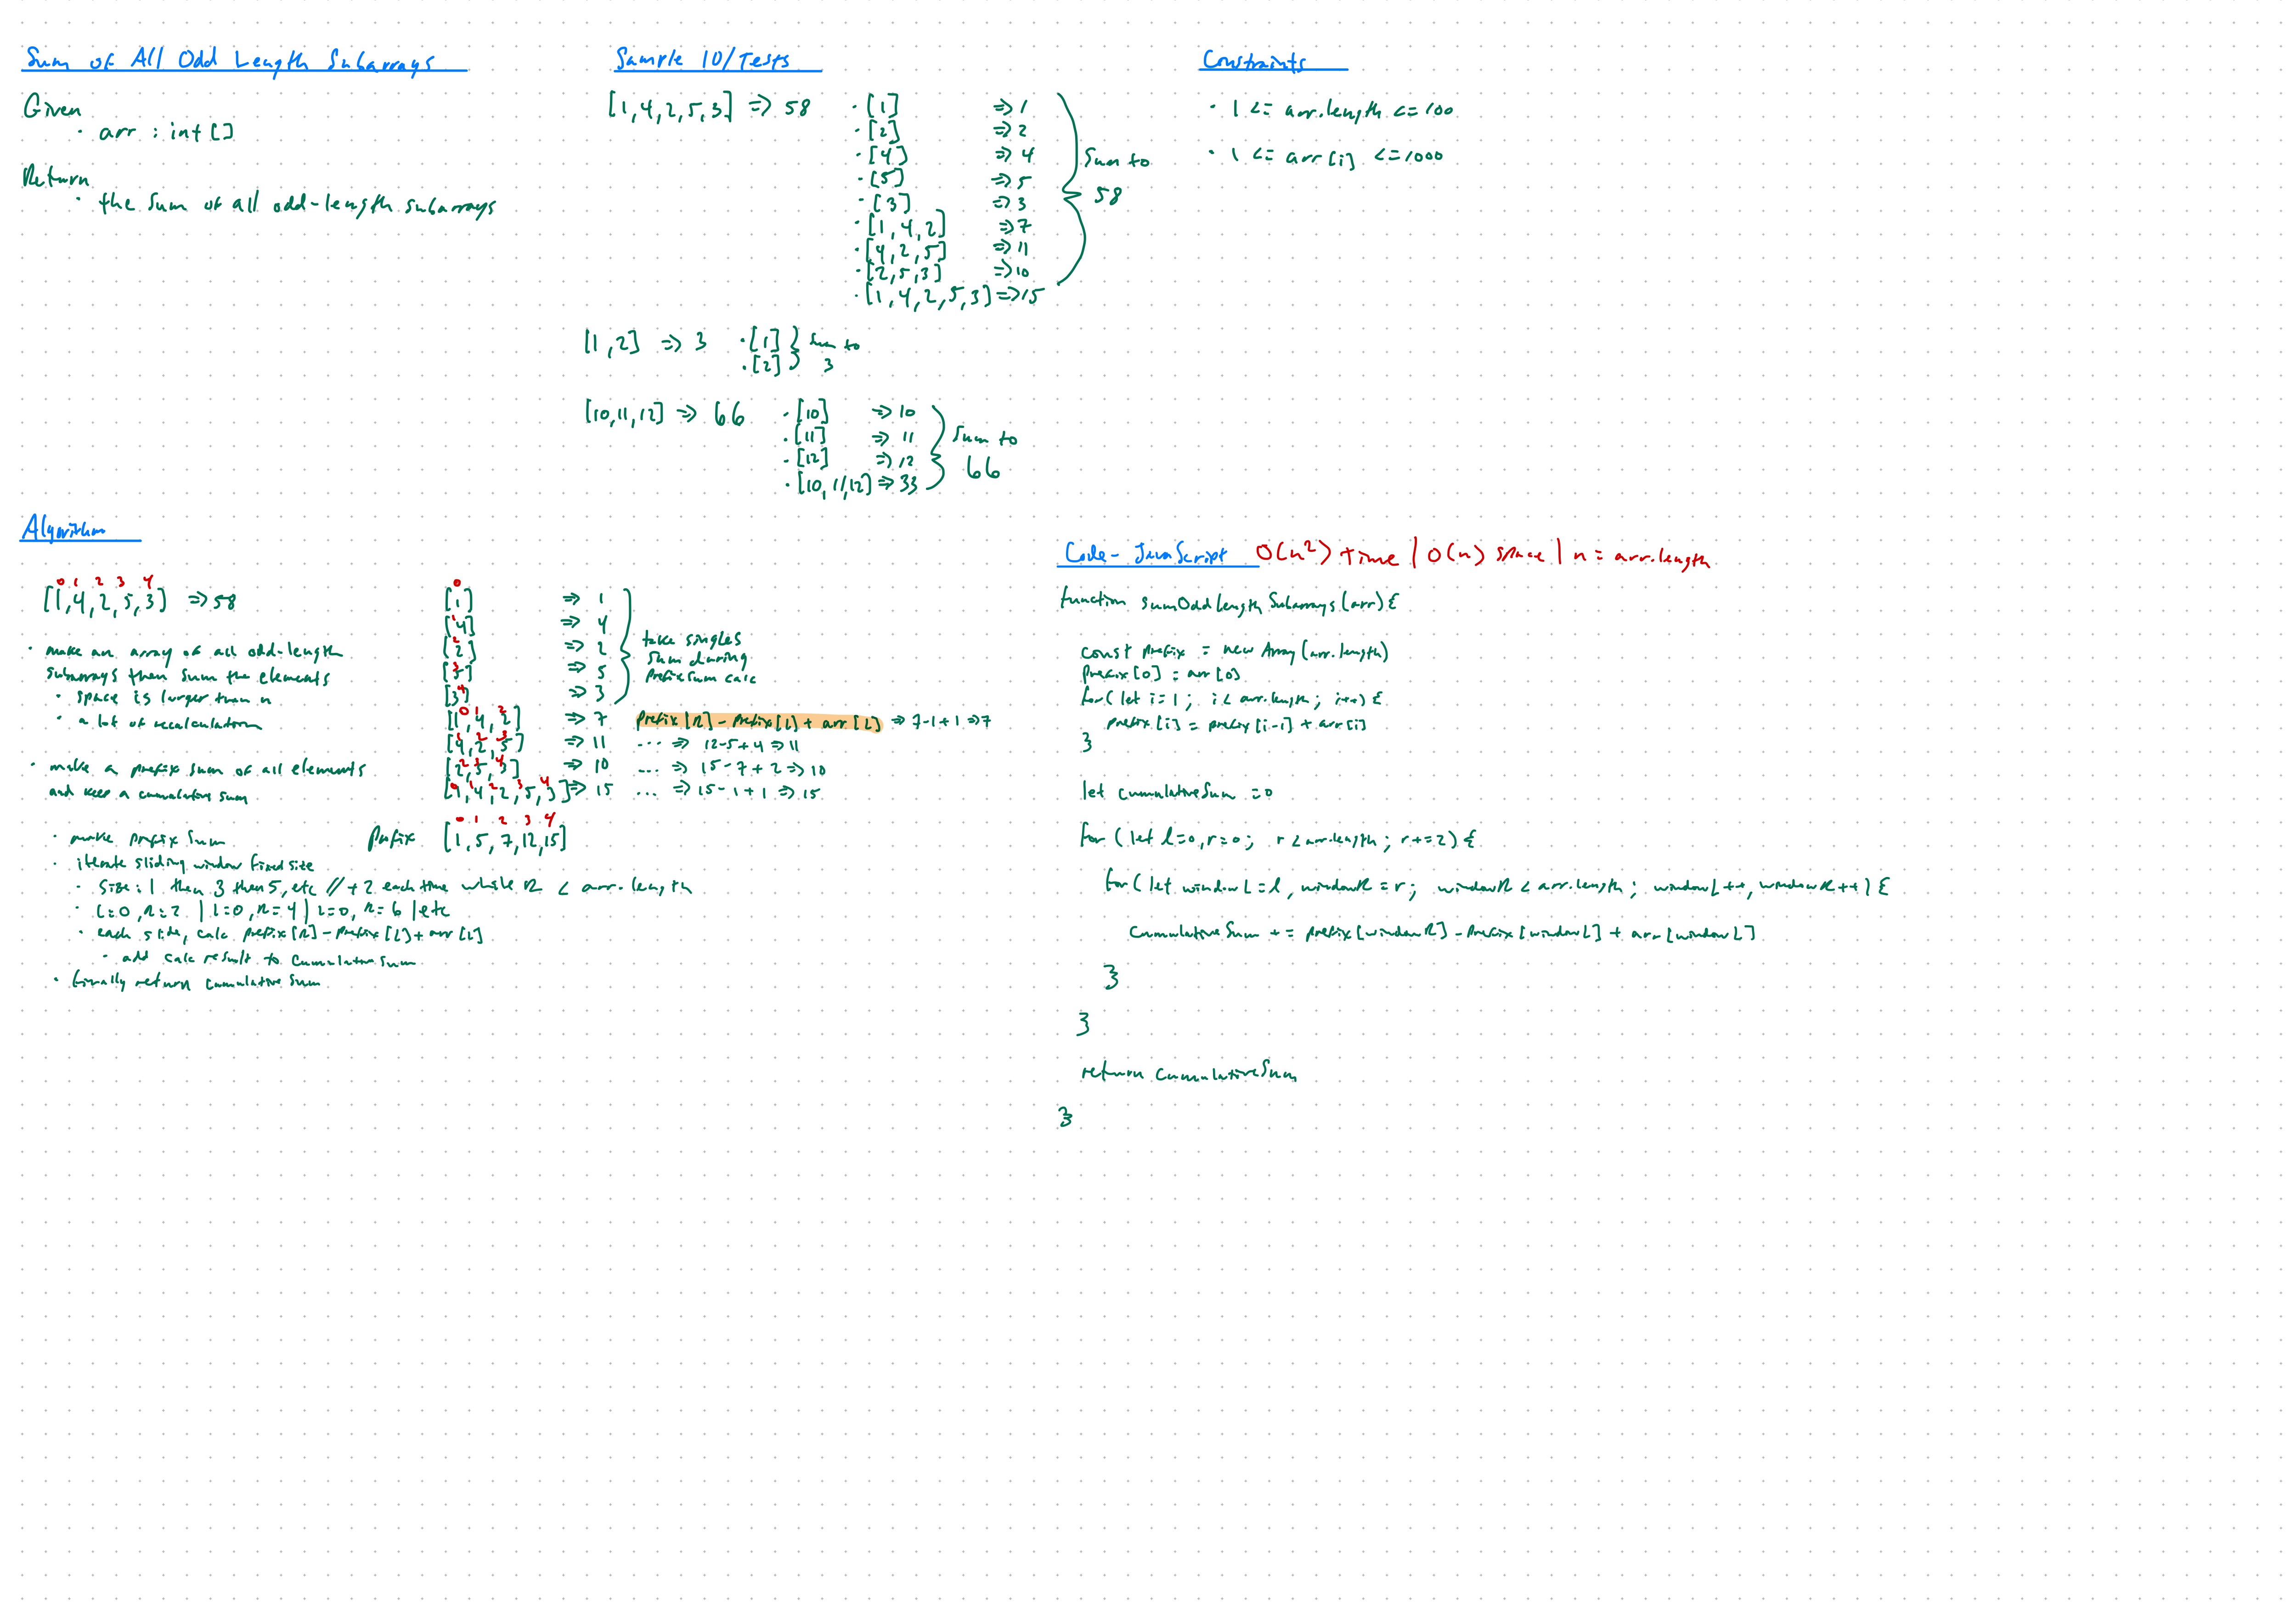 Sum of All Odd Length Subarrays
Given
· arr : int[]
Return
· the sum of all odd-length subarrays
Sample IO/Tests
[1,4,2,5,3] => 58
· [1] => 1
· [2] => 2
· [4] => 4
· [5] => 5
· [3] => 3
· [1,4,2] => 7
· [4,2,5] => 11
· [2,5,3] => 10
· [1,4,2,5,3] => 15
Sum to
58
[1,2] => 3
· [1]
· [2]
Sum to
3
[10,11,12] => 66
· [10] => 10
· [11] => 11
· [12] => 12
· [10,11,12] => 33
Sum to
66
Constraints
· 1 <= arr.length <= 100
· 1 <= arr[i] <= 1000
Algorithm
0 1 2 3 4
[1,4,2,5,3] => 58
· make an array of all odd-length
subarrays then sum the elements
· space is larger than n
· a lot of recalculation
· make a prefix sum of all elements
and keep a cumulative sum
· make prefix sum
· iterate sliding window fixed size
· size: 1 then 3 then 5, etc // +2 each time while R < arr.length
· L=0, R=2 | L=0, R=4 | L=0, R=6 | etc
· each slide, calc prefix[R] - prefix[L] + arr[L]
· add calc result to cumulative sum
· finally return cumulative sum
0
[1] => 1
1
[4] => 4
2
[2] => 2
3
[5] => 5
4
[3] => 3
take singles
sum during
prefix sum calc
0 1 2
[1,4,2] => 7 prefix[R] - prefix[L] + arr[L] => 7-1+1 => 7
1 2 3
[4,2,5] => 11 ... => 12-5+4 => 11
2 3 4
[2,5,3] => 10 ... => 15-7+2 => 10
0 1 2 3 4
[1,4,2,5,3] => 15 ... => 15-1+1 => 15
0 1 2 3 4
Prefix [1,5,7,12,15]
Code - JavaScript O(n²) time | O(n) space | n = arr.length
function sumOddLengthSubarrays(arr){
const prefix = new Array(arr.length)
prefix[0] = arr[0]
for(let i=1; i < arr.length; i++) {
prefix[i] = prefix[i-1] + arr[i]
}
let cumulativeSum = 0
for (let l=0, r=0; r < arr.length; r+=2) {
for(let windowL=l, windowR=r; windowR < arr.length; windowL++, windowR++) {
cumulativeSum += prefix[windowR] - prefix[windowL] + arr[windowL]
}
}
return cumulativeSum
}